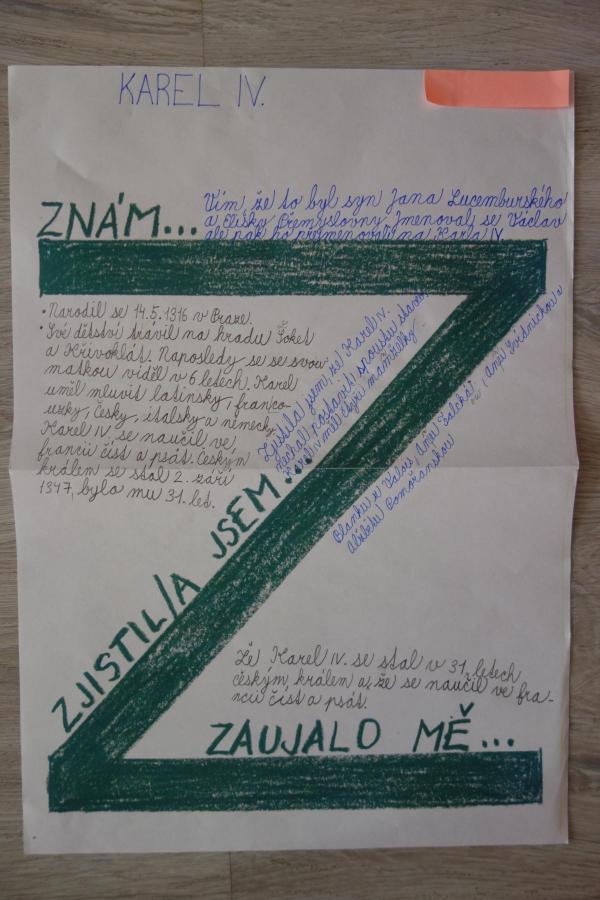 KAREL IV.
ZNÁM...
Vím, že to byl syn Jana Lucemburského
a Elišky Přemyslovny. Jmenoval se Václav
ale pak ho přejmenovali na Karla IV.
• Narodil se 14.5.1316 v Praze.
• Své dětství trávil na hradu Šoket
a Křivoklát. Naposledy se se svou
matkou viděl v 6 letech. Karel
uměl mluvit latinsky, franco-
uzky, česky, italsky a německy
Karel IV. se naučil ve
francii číst a psát. Českým
králem se stal 2. září
1347, bylo mu 31. let.
ZJISTIL/A JSEM...
Zjistila jsem, že Karel IV.
nechal postavit spoustu staveb
Karel IV měl čtyři manželky
Blanku z Valois Anu Falckou, Anu Svídnickou a
Alžbětu Pomořanskou
Že Karel IV. se stal v 31. letech
českým králem a, že se naučil ve fra-
ncii číst a psát.
ZAUJALO MĚ...